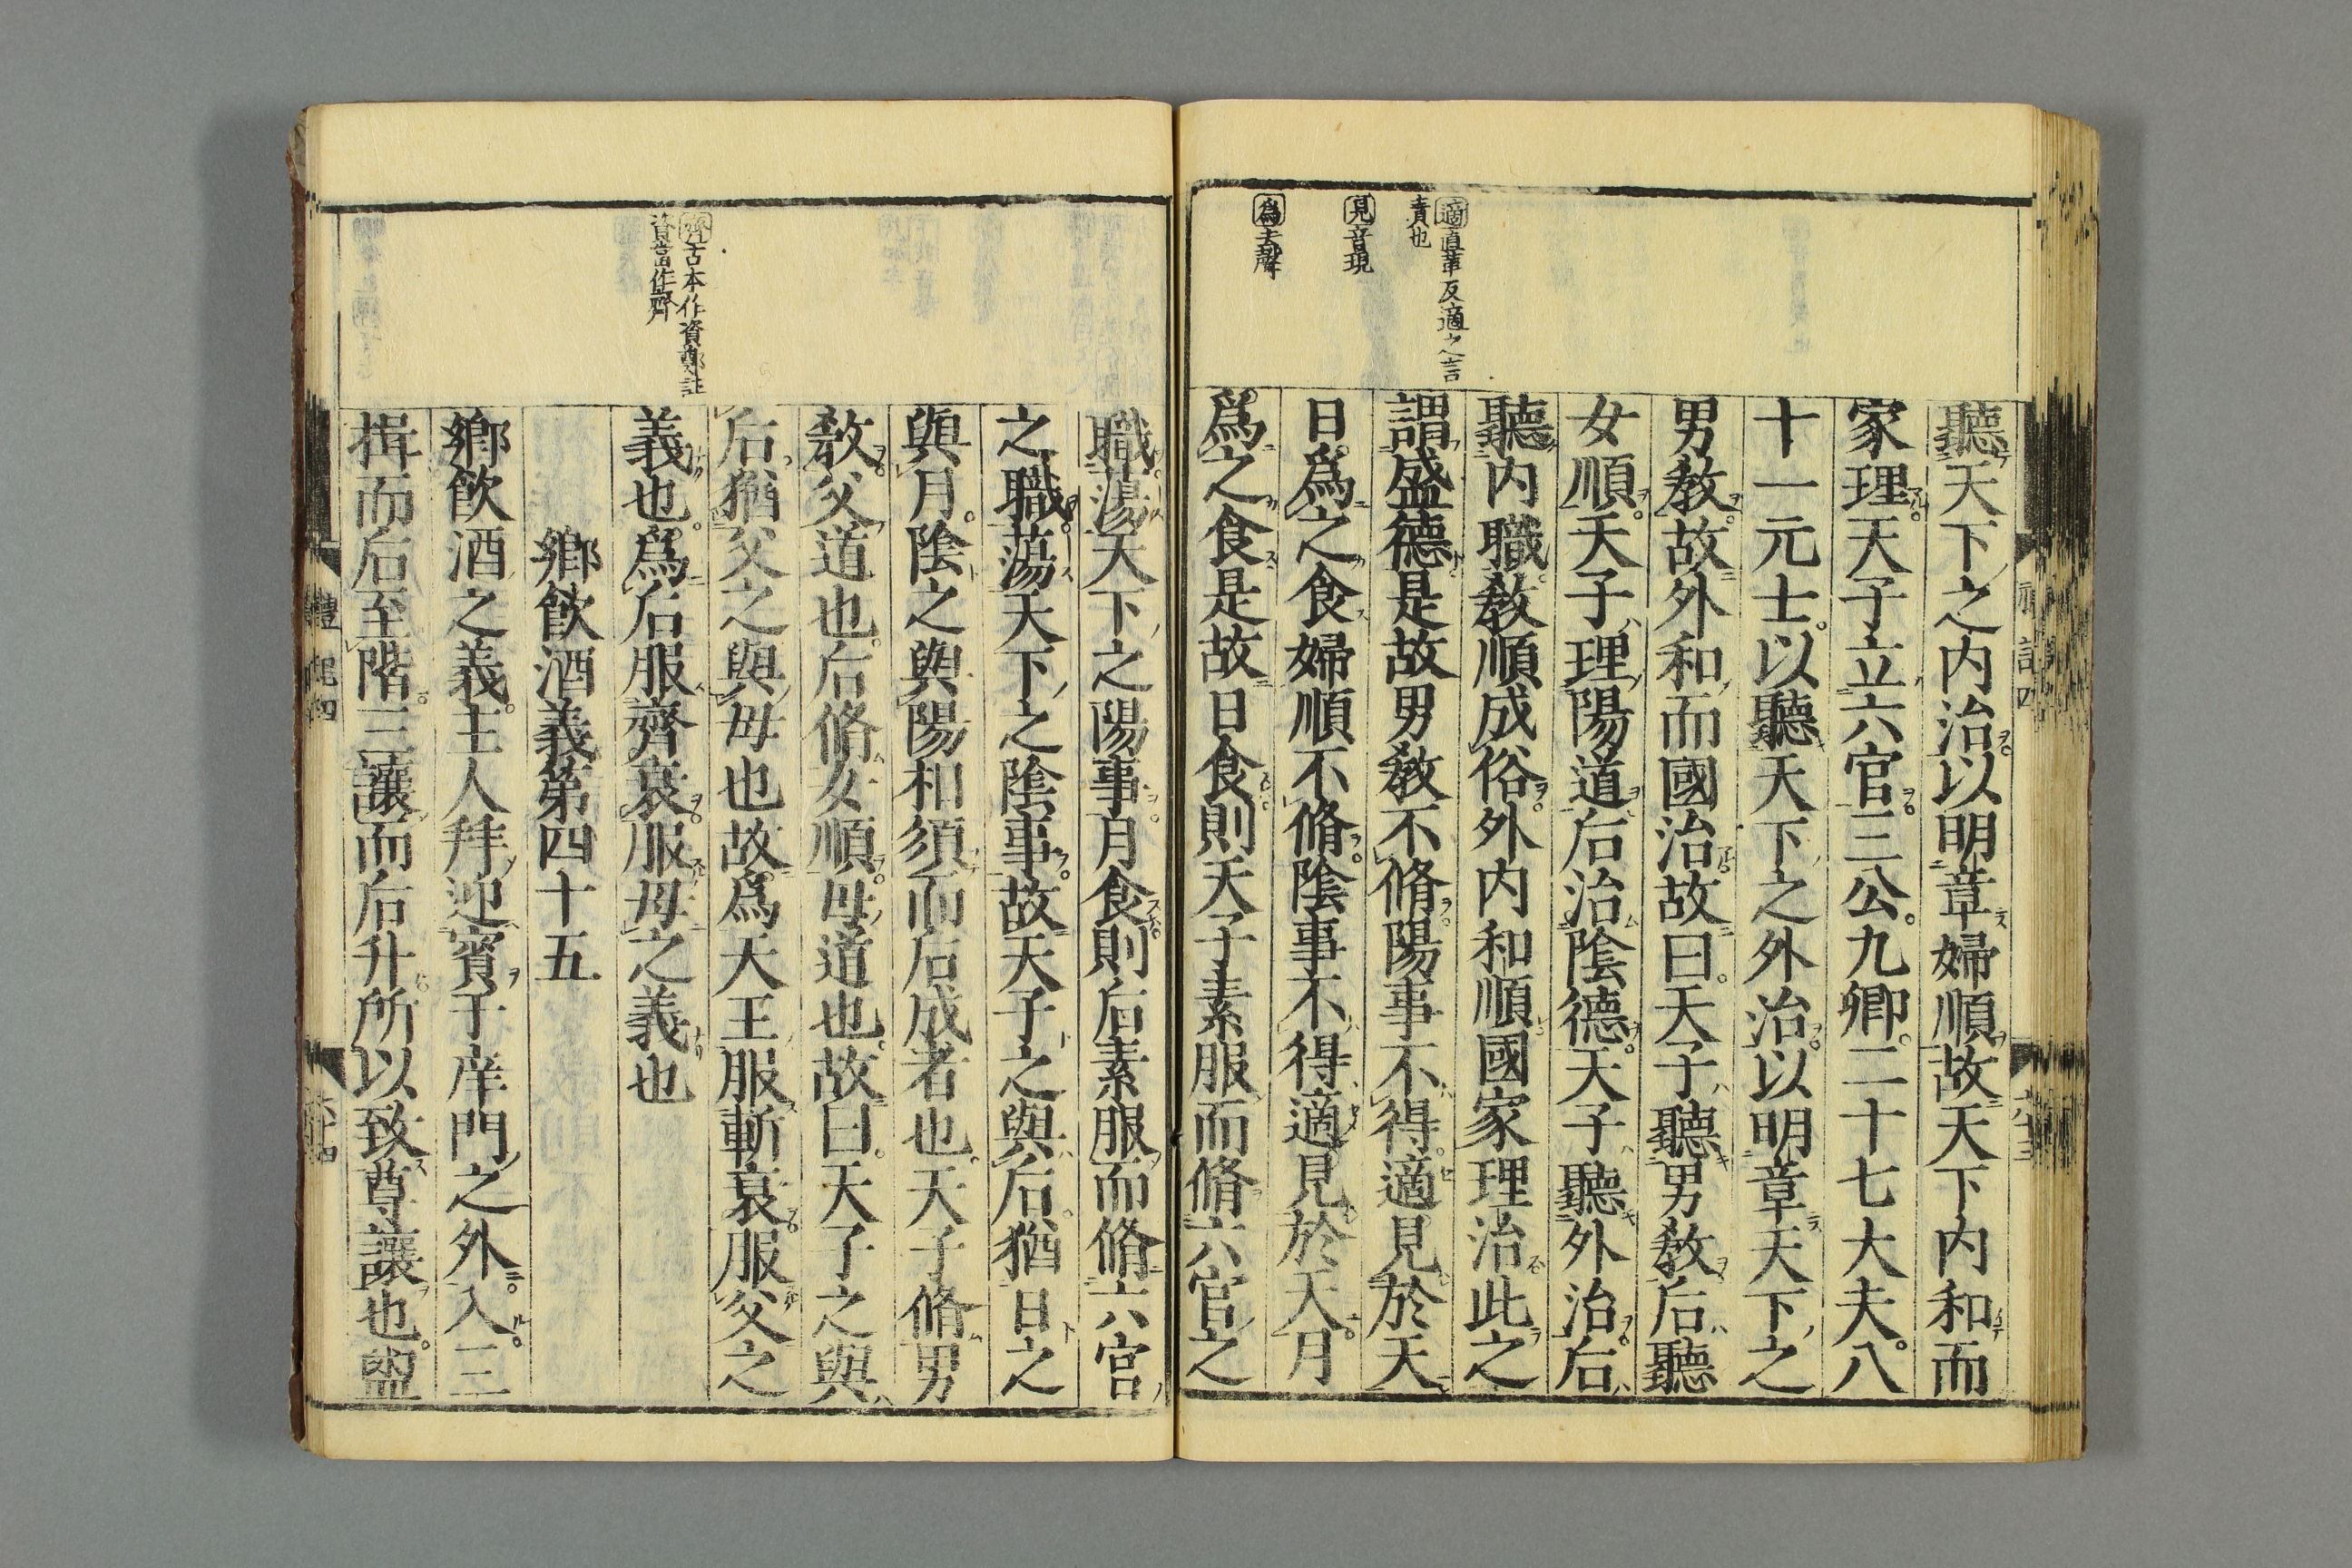 適直革反適之言
責也
見音現
爲去聲
聽天下之内治以明章婦順故天下内和而
家理天子立六官三公九卿二十七大夫八
十一元士以聽天下之外治以明章天下之
男敎故外和而國治故曰天子聽男敎后聽
女順天子理陽道后治陰德天子聽外治后
聽内職敎順成俗外内和順國家理治此之
謂盛德是故男敎不脩陽事不得適見於天
日爲之食婦順不脩陰事不得適見於天月
爲之食是故日食則天子素服而脩六官之
齊古本作資鄭註
資當作齊
職蕩天下之陽事月食則后素服而脩六宮
之職蕩天下之陰事故天子之與后猶日之
與月陰之與陽相須而后成者也天子脩男
敎父道也后脩女順母道也故曰天子之與
后猶父之與母也故爲天王服斬衰服父之
義也爲后服齊衰服母之義也
鄉飲酒義第四十五
鄉飲酒之義主人拜迎賓于庠門之外入三
揖而后至階三讓而后升所以致尊讓也盥
禮記四